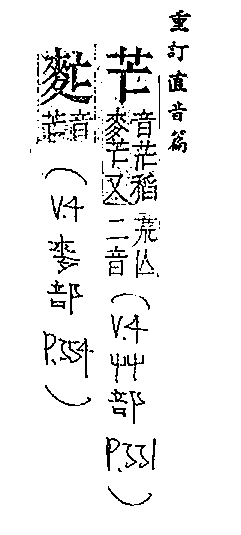 重訂直音篇
芒 音茫稻麥芒又荒亾二音 (V.4 艸部 P.331)
音芒 (V.4 麥部 P.354)